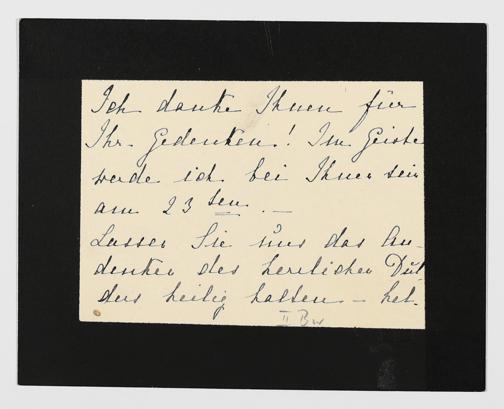 Ich danke Ihnen für
Ihr Gedenken! Im Geiste
werde ich bei Ihnen sein
am 23 sten. —
Lassen Sie uns das An-
denken des herrlichen Dul-
ders heilig halten —
II Bw